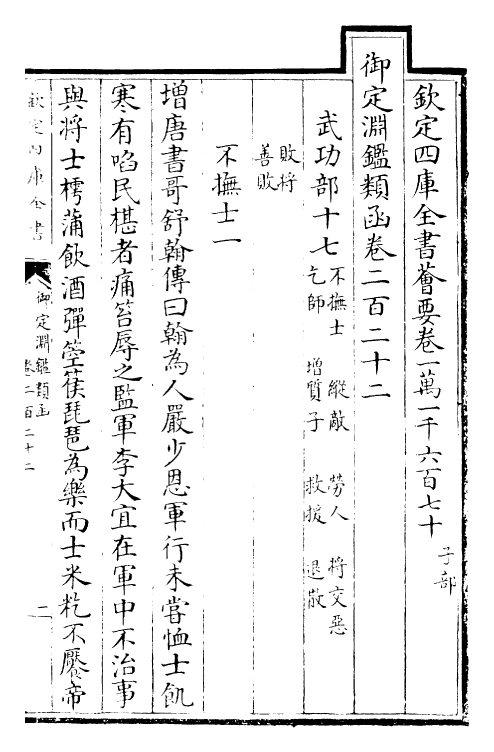 欽定四庫全書薈要卷一萬一千六百七十 子部
御定淵鑑類函卷二百二十二
武功部十七 不撫士 縱敵 勞人 將交惡
乞師 增質子 救援 退散
敗將
善敗
不撫士一
增唐書哥舒翰傳曰翰為人嚴少恩軍行未嘗恤士飢
寒有啗民椹者痛笞辱之監軍李大宜在軍中不治事
與將士樗蒲飲酒彈箜篌琵琶為樂而士米籺不饜帝
欽定四庫全書
御定淵鑑類函
卷二百二十二